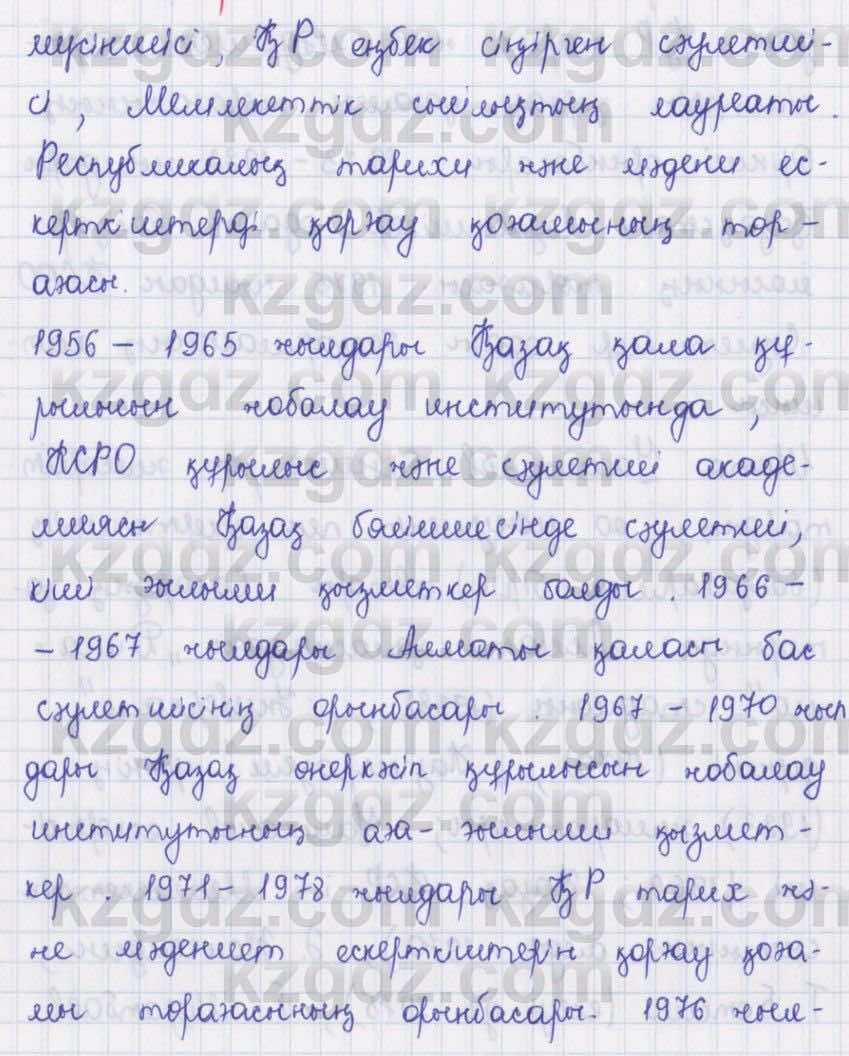 мүсіншісі, ҚР еңбек сіңірген сәулетші-
сі, Мемлекеттік сыйлықтың лауреаты.
Республикалық тарихи және мәдени ес-
керткіштерді қорғау қоғамының төр-
ағасы.
1956 – 1965 жылдары Қазақ қала құ-
рылысын жобалау институтында,
КСРО құрылыс және сәулетші акаде-
миясы Қазақ бөлімшесінде сәулетші,
кіші ғылыми қызметкер болды. 1966 –
– 1967 жылдары Алматы қаласы бас
сәулетшісінің орынбасары. 1967 – 1970 жыл
дары Қазақ өнеркәсіп құрылысын жобалау
институтының аға-ғылыми қызмет-
кер. 1971 – 1978 жылдары ҚР тарих жә-
не мәдениет ескерткіштерін қорғау қоға-
мы төрағасының орынбасары. 1976 жыл-
kzgdz.com